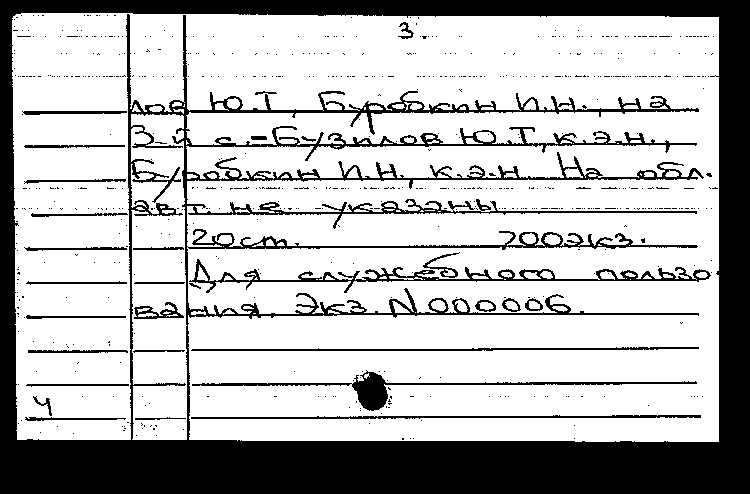 3.
лов Ю.Т, Буробкин И.Н., на
3-й с.-Бузилов Ю.Т,к.э.н.,
Буробкин И.Н., к.э.н. На обл.
авт. не указаны
20ст. 700экз.
Для служебного пользо-
вания. Экз. N 000006.
Ч